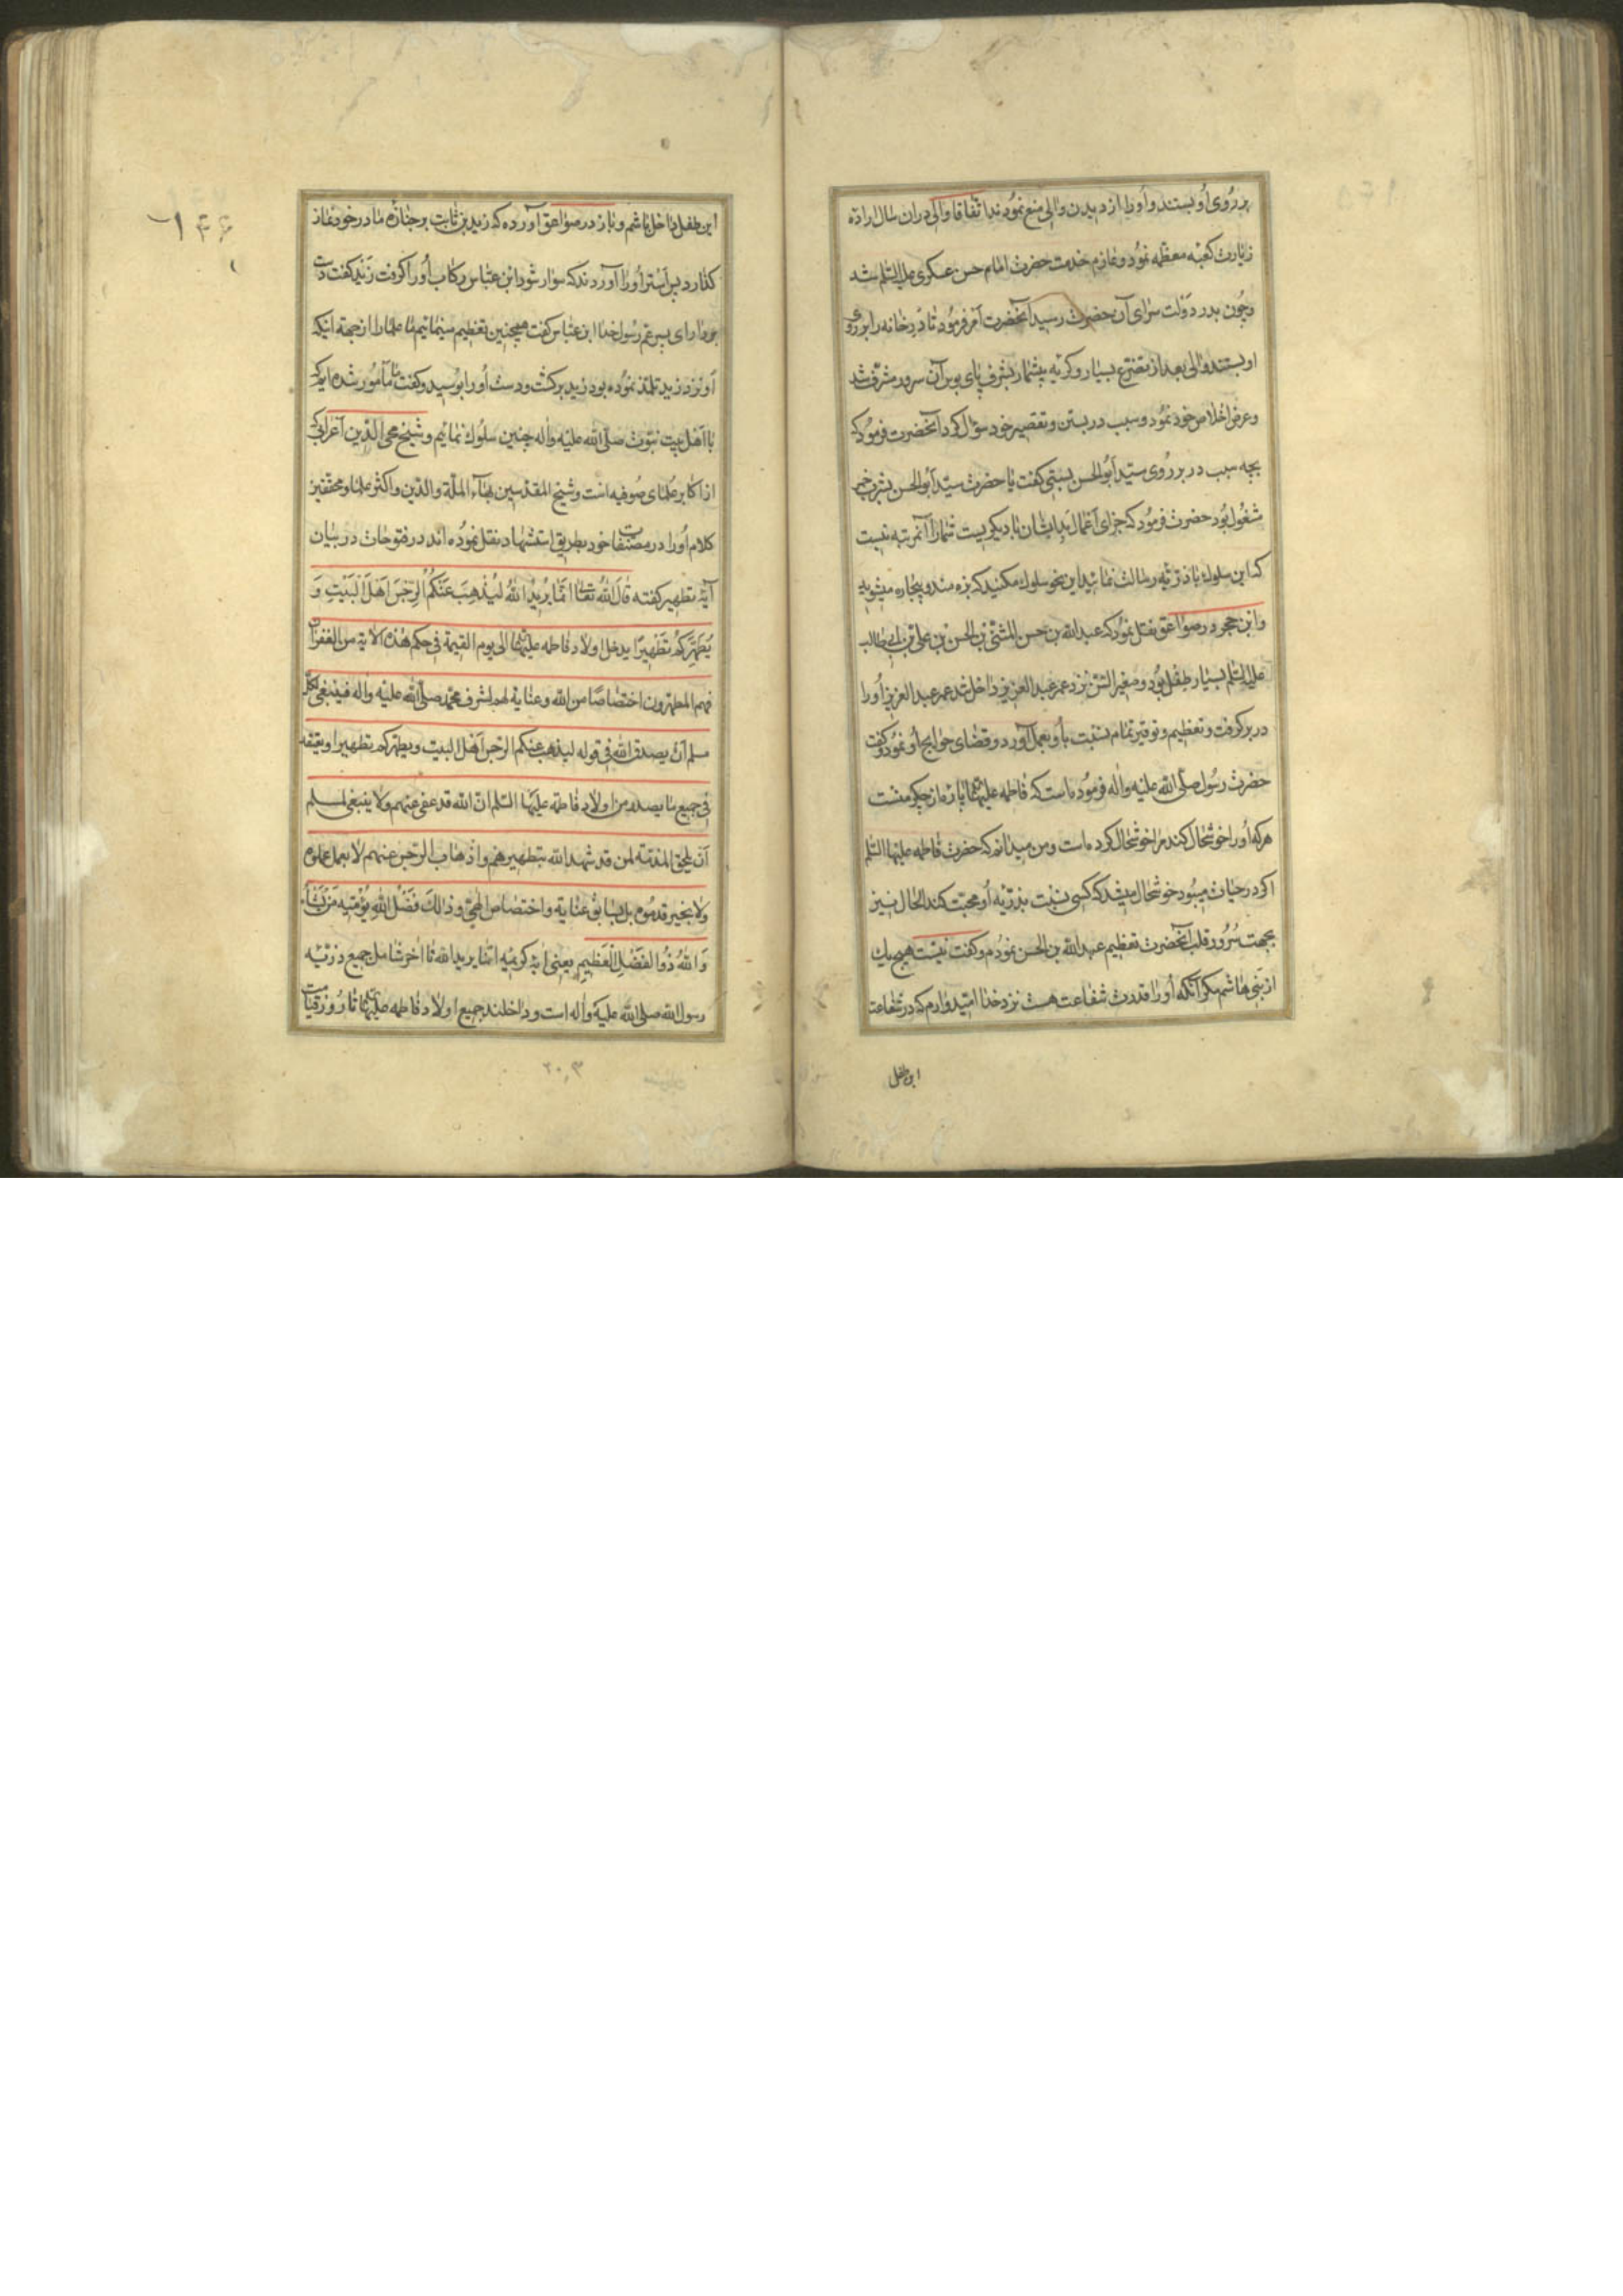 بر روی او بستند و او را از دیدن والی منع نمودند اتفاقا والی دران سال اراده
زیارت کعبه معظمه نمود و عازم خدمت حضرت امام حسن عسکری علیه السلم شد
و چون بدر دولت سرای آن حضرت رسید آنحضرت امر فرمود تا در خانه را بر روی
او بستند والی بعد از تضرع بسیار و کریه بیشمار بشرف پای بوس آن سرور مشرف شد
و عرض اخلاص خود نمود و سبب در بستن و تقصیر خود سؤال کرد آنحضرت فرمود که
بچه سبب در بر روی سید ابوالحسن بستی کفت یا حضرت سید ابوالحسن بشرب خمر
مشغول بود حضرت فرمود که جزای اعمال بد ایشان با دیکریست شما را آنمرتبه نیست
که این سلوک با ذریه رسالت نمائید این نحو سلوک مکنید که بزه مند و بیچاره میشوید
و ابن حجر در صواعق نقل نموده که عبد الله بن حسن المثنی بن الحسن بن علی بن ابی طالب
علیه السلم بسیار طفل بود و صغیر السن نزد عمر عبد العزیز داخل شد عمر عبد العزیز او را
در بر کرفت و تعظیم و توقیر تمام نسبت باو بعمل آورد و قضای حوایج او نمود و کفت
حضرت رسول صلی الله علیه واله فرموده است که فاطمه علیها پاره از جکر منست
هرکه او را خوشحال کند مرا خوشحال کرده است و من میدانم که حضرت فاطمه علیها السلم
اکر در حیات میبود خوشحال میشد که کسی نسبت بذریه او محبت کند الحال نیز
بجهت سرور قلب آنحضرت تعظیم عبد الله بن الحسن نمودم و کفت نیست هیچ یک
از بنی هاشم مکر آنکه او را قدرت شفاعت هست نزد خدا امیدوارم که در شفاعت
این طفل
این طفل داخل باشم و باز در صواعق آورده که زید بن ثابت بر جنازه مادر خود نماز
کذارد پس استر او را آوردند که سوار شود ابن عباس رکاب او را کرفت زید کفت دست
بردار ای پسر عم رسول خدا ابن عباس کفت همچنین تعظیم مینمائیم ما علما را از جهة اینکه
او نزد زید تلمذ نموده بود زید برکشت و دست او را بوسید و کفت ما مامور شده ایم که
با اهل بیت نبوت صلی الله علیه واله چنین سلوک نمائیم و شیخ محی الدین اعرابی که
از اکابر علمای صوفیه است و شیخ المقدسین بهاء الملة والدین و اکثر علما و محققین
کلام او را در مصنفات خود بطریق استشهاد نقل نموده اند در فتوحات در بیان
آیة تطهیر کفته قال الله تعالی انما یرید الله لیذهب عنکم الرجس اهل البیت و
یطهرکم تطهیرا یدخل اولاد فاطمه علیها الی یوم القیمة فی حکم هذه الایة من الغفران
فهم المطهرون اختصاصا من الله و عنایة لهم لشرف محمد صلی الله علیه واله فینبغی لکل
مسلم ان یصدق الله فی قوله لیذهب عنکم الرجس اهل البیت ویطهرکم تطهیرا ویعتقد
فی جمیع ما یصدر من اولاد فاطمة علیها السلم ان الله قد عفی عنهم ولا ینبغی لمسلم
ان یلحق المذمة لمن قد شهد الله بتطهیرهم واذهاب الرجس عنهم لا بعمل عملوه
ولا بخیر قدموه بل بسابق عنایة واختصاص الهی وذالک فضل الله یؤتیه من یشاء
والله ذو الفضل العظیم یعنی آیه کریمه انما یرید الله تا اخر شامل جمیع ذریه
رسول الله صلی الله علیه واله است و داخلند جمیع اولاد فاطمه علیها تا روز قیامت